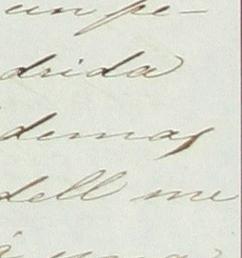 un pe-
drida
demas
dell me